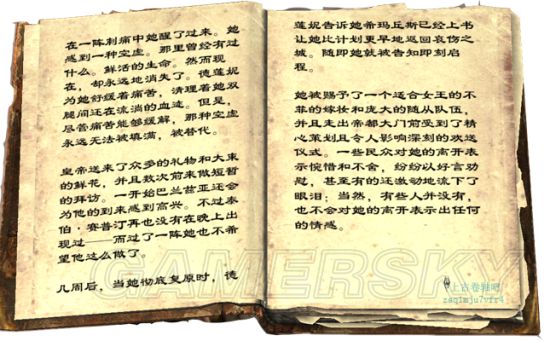 在一阵刺痛中她醒了过来。她
感到一种空虚。那里曾经有过
什么。鲜活的生命。然而现
在，却永远地消失了。德莲妮
为她舒缓着痛苦，清理着她双
腿间还在流淌的血迹。但是，
尽管痛苦能够缓解，那种空虚
永远无法被填满，被替代。
皇帝送来了众多的礼物和大束
的鲜花，并且数次前来做短暂
的拜访。一开始巴兰兹亚还会
为他的到来感到高兴。不过泰
伯·赛普汀再也没有在晚上出
现过——而过了一阵她也不希
望他这么做了。
几周后，当她彻底复原时，德
莲妮告诉她希玛丘斯已经上书
让她比计划更早地返回哀伤之
城。随即她就被告知即刻启
程。
她被赐予了一个适合女王的不
菲的嫁妆和庞大的随从队伍，
并且走出帝都大门前受到了精
心策划且令人影响深刻的欢送
仪式。一些民众对她的离开表
示惋惜和不舍，纷纷以好言劝
慰，甚至有的还激动地流下了
眼泪；当然，有些人并没有，
也不会对她的离开表示出任何
的情感。
GAMERSKY
上古卷轴吧
zaq1mju7vfr4